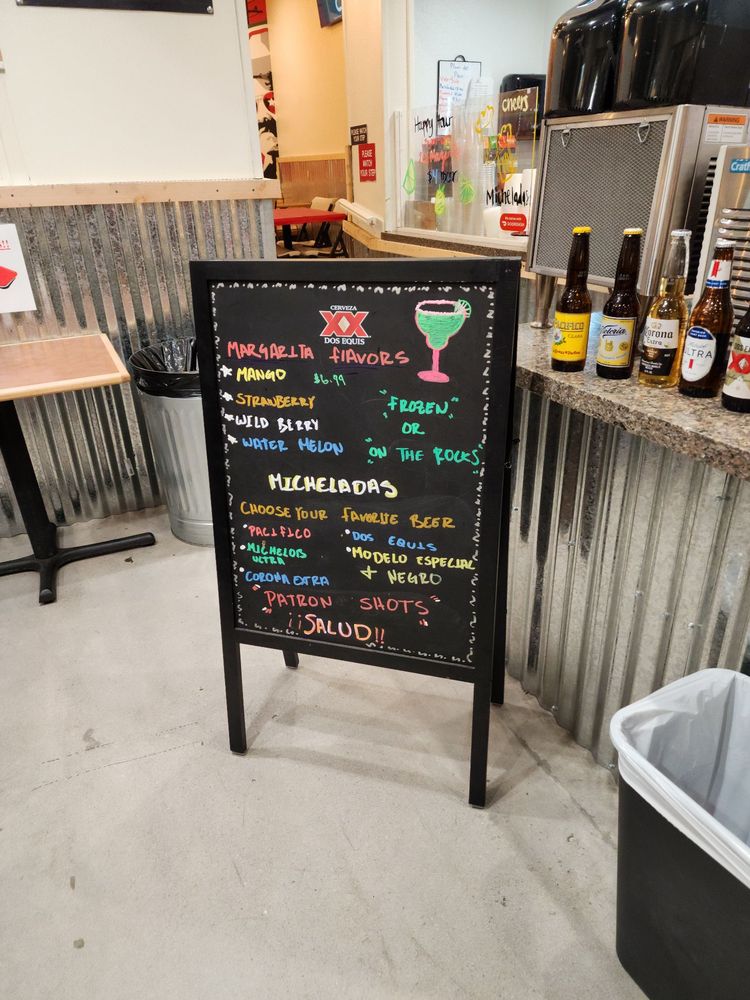 CERVEZA
XX
DOS EQUIS
MARGARITA flAVORS
MANGO $6.99
STRAWBERRY
WILD BERRY
WATER MELON
"FROZEN"
OR
"ON THE ROCKS"
MICHELADAS
CHOOSE YOUR FAVORITE BEER
PACIFICO
MICHELOB
ULTRA
CORONA EXTRA
DOS EQUIS
MODELO ESPECIAL
+ NEGRO
"PATRON SHOTS"
¡¡SALUD!!
Happy Hour
cheers
Micheladas
PLEASE WATCH
YOUR STEP
PLEASE
WATCH
YOUR STEP
DOORDASH
WARNING
Crath
PACIFICO
Victoria
Corona
Extra
ULTRA